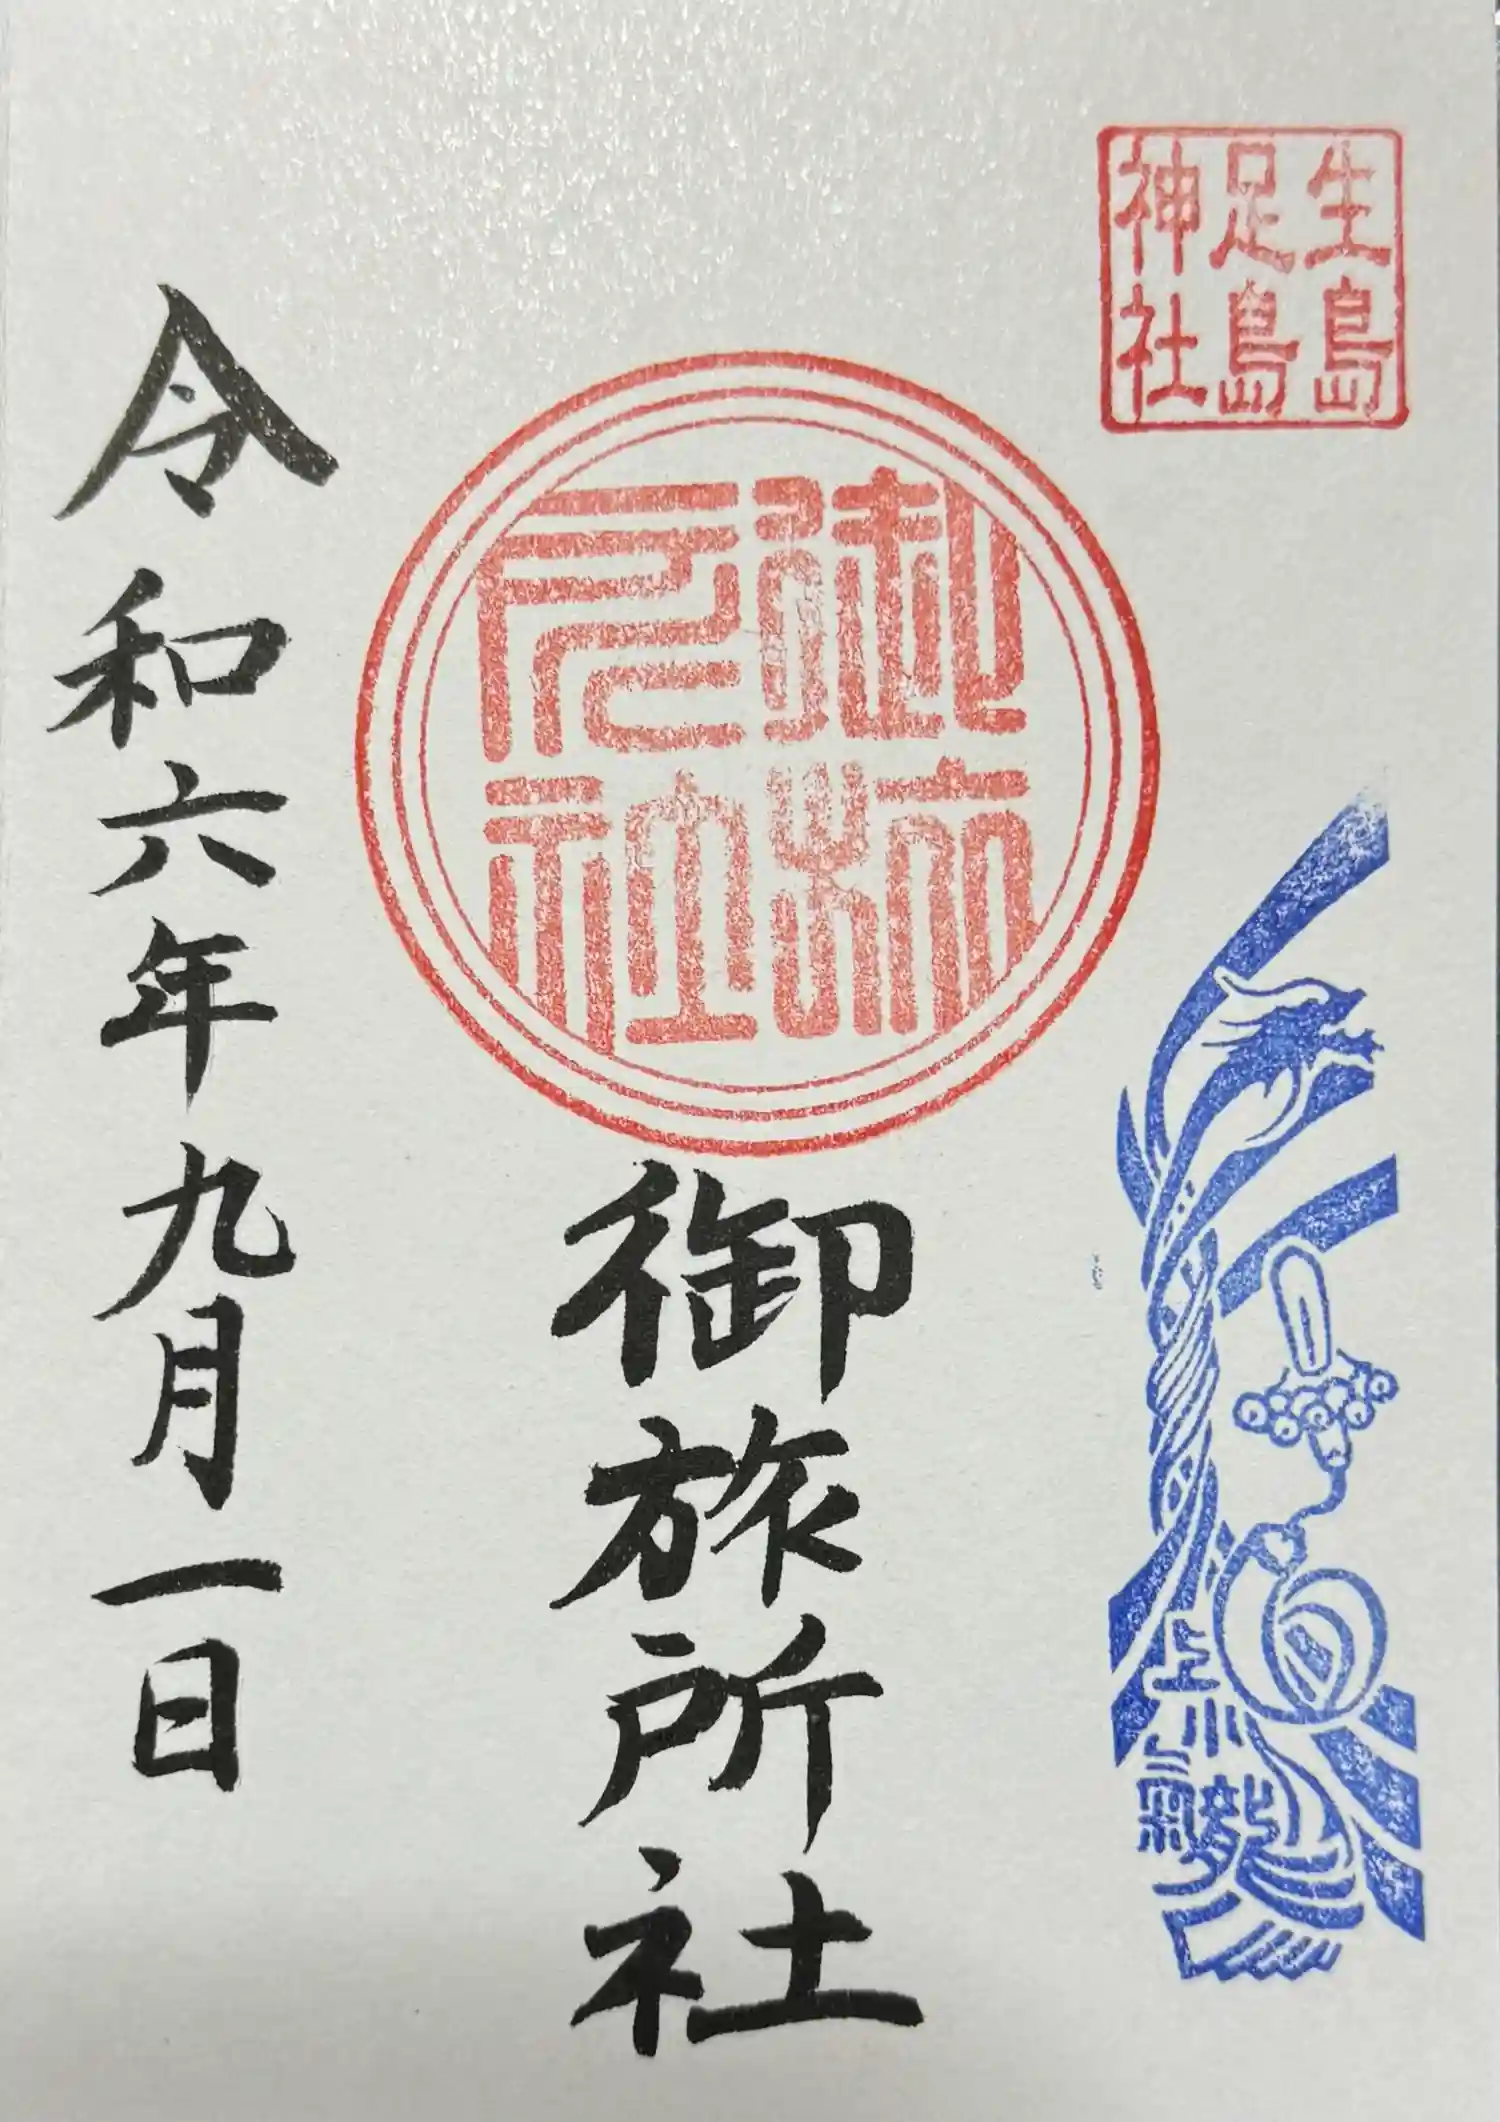 生島
足島
神社
御旅
所社
御旅所社
上小
令和六年九月一日